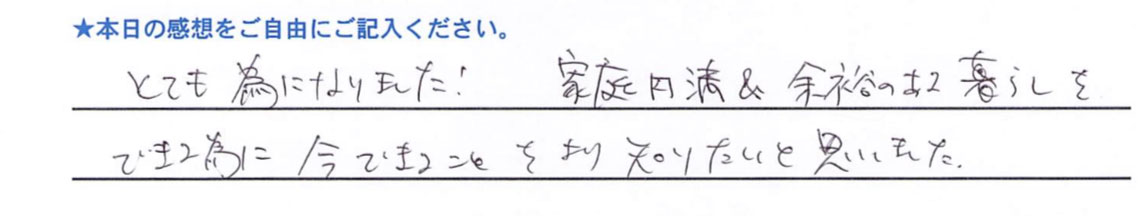 ★本日の感想をご自由にご記入ください。
とても為になりました! 家庭円満&余裕のある暮らしを
できる為に今できることをより知りたいと思いました.